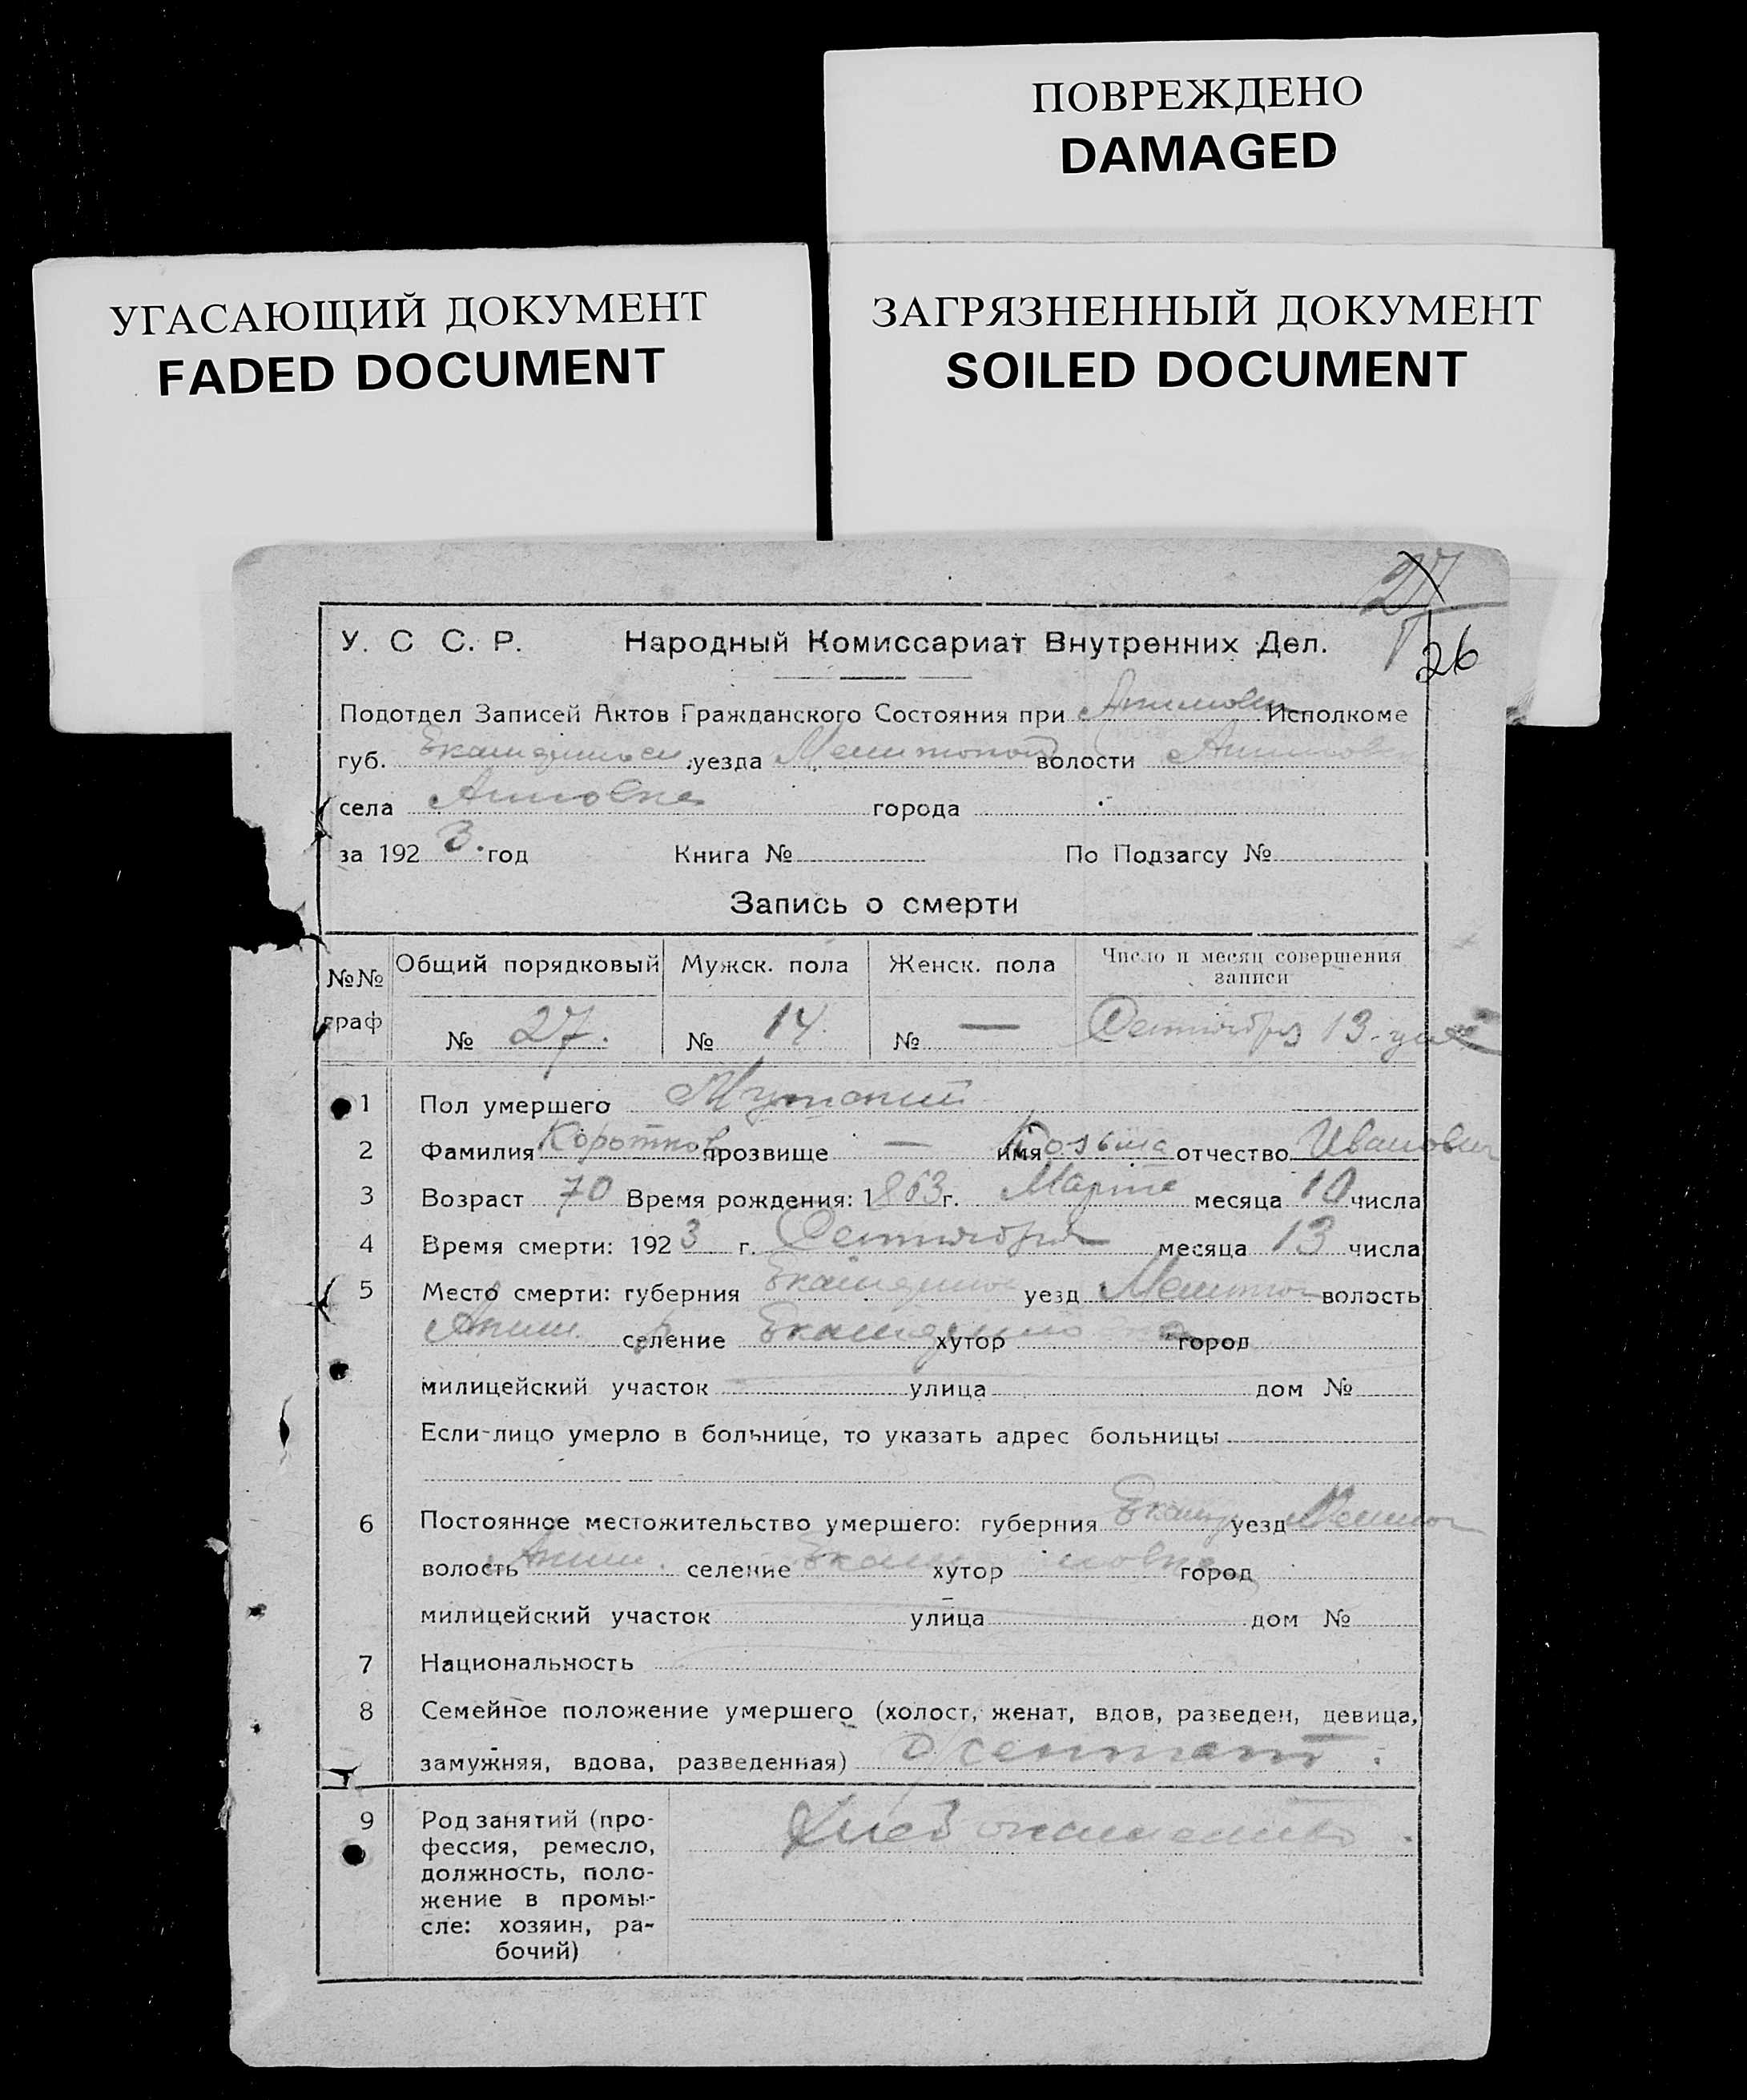 ПОВРЕЖДЕНО
DAMAGED
УГАСАЮЩИЙ ДОКУМЕНТ
FADED DOCUMENT
ЗАГРЯЗНЕННЫЙ ДОКУМЕНТ
SOILED DOCUMENT
27
26
У. С С. Р. Народный Комиссариат Внутренних Дел.
Подотдел Записей Актов Гражданского Состояния при Исполкоме
губ. уезда волости
села города
за 1923 год Книга № По Подзагсу №
Запись о смерти
№№ граф Общий порядковый Мужск. пола Женск. пола Число и месяц совершения записи
№ 27. № 14. № — Сентября 13. дня
1 Пол умершего Мужской
2 Фамилия Коротков прозвище — имя Козьма отчество Иванович
3 Возраст 70 Время рождения: 1863 г. Марта месяца 10 числа
4 Время смерти: 1923 г. Сентября месяца 13 числа
5 Место смерти: губерния уезд Мелитоп волость
Аким. селение хутор город
милицейский участок улица дом №
Если лицо умерло в больнице, то указать адрес больницы
6 Постоянное местожительство умершего: губерния уезд Мелитоп
волость Аким. селение хутор город
милицейский участок улица дом №
7 Национальность
8 Семейное положение умершего (холост, женат, вдов, разведен, девица,
замужняя, вдова, разведенная)
9 Род занятий (про-
фессия, ремесло,
должность, поло-
жение в промы-
сле: хозяин, ра-
бочий)